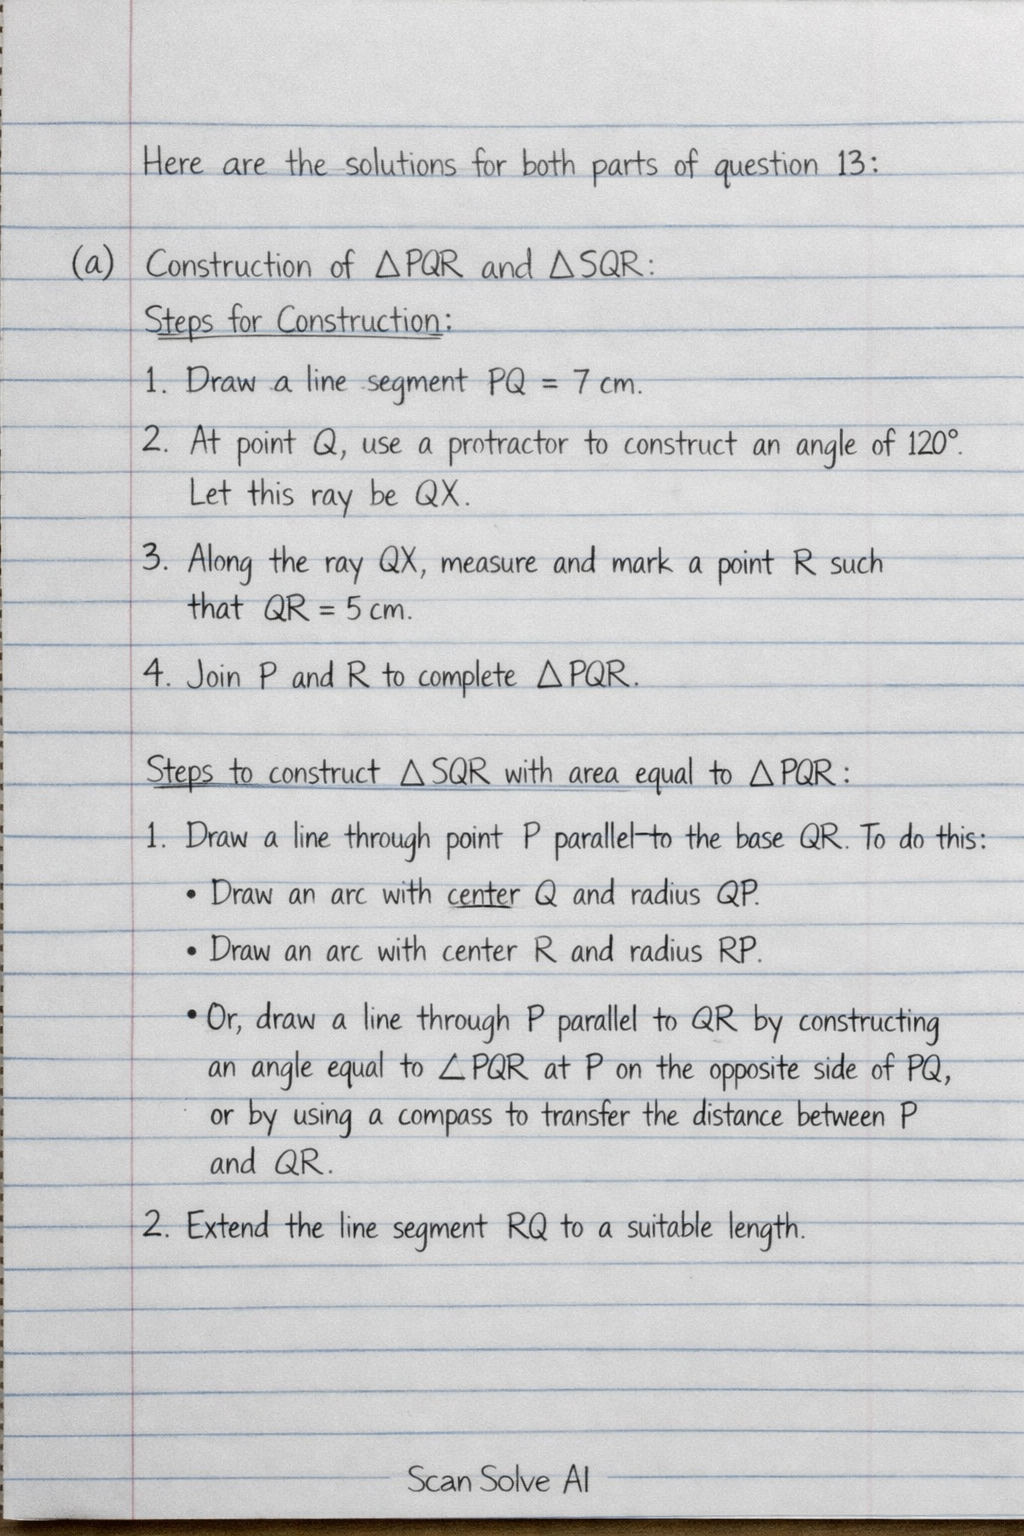 Here are the solutions for both parts of question 13:
(a) Construction of △PQR and △SQR:
Steps for Construction:
1. Draw a line segment PQ = 7 cm.
2. At point Q, use a protractor to construct an angle of 120°.
Let this ray be QX.
3. Along the ray QX, measure and mark a point R such
that QR = 5 cm.
4. Join P and R to complete △PQR.
Steps to construct △SQR with area equal to △PQR:
1. Draw a line through point P parallel to the base QR. To do this:
• Draw an arc with center Q and radius QP.
• Draw an arc with center R and radius RP.
• Or, draw a line through P parallel to QR by constructing
an angle equal to ∠PQR at P on the opposite side of PQ,
or by using a compass to transfer the distance between P
and QR.
2. Extend the line segment RQ to a suitable length.
Scan Solve AI